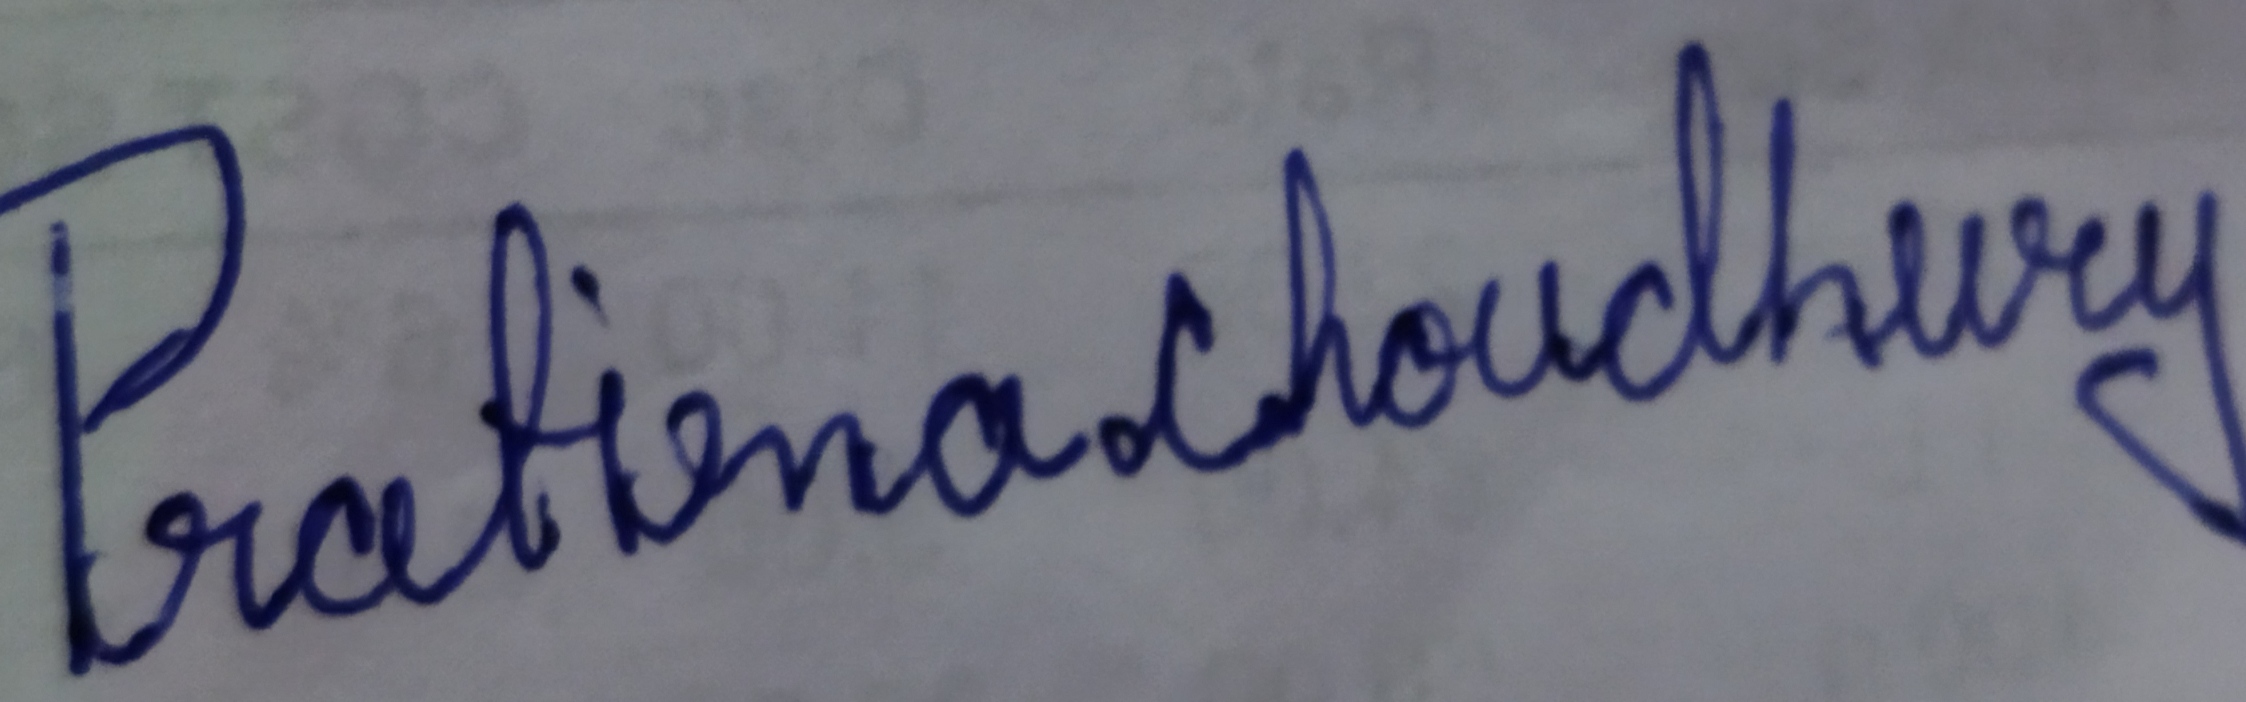 Pratima Choudhury